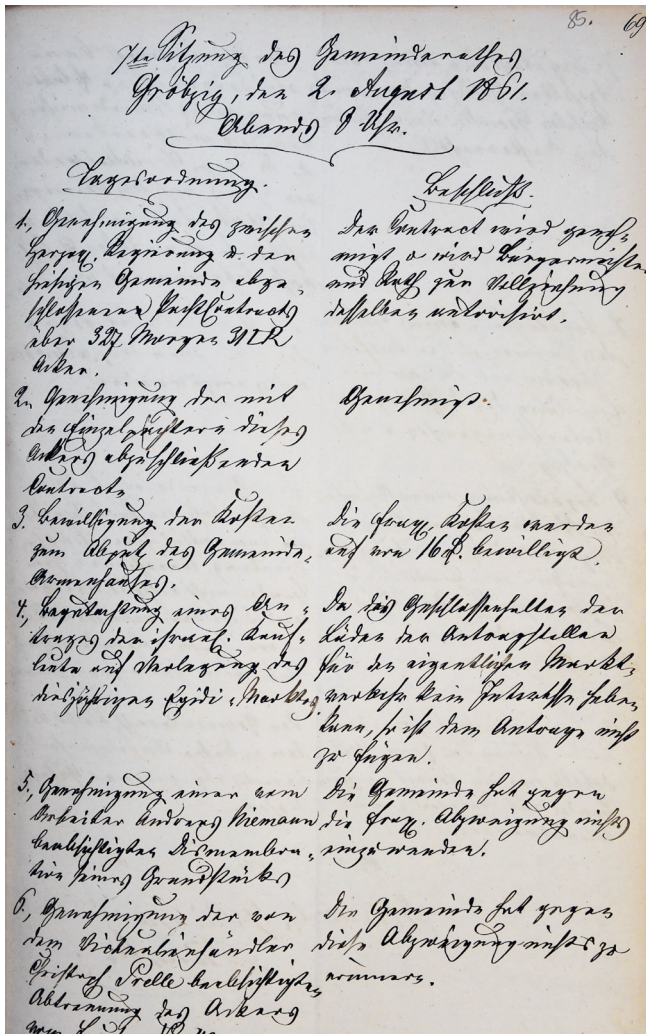 85. 69
7te Sitzung des Gemeinderathes
Gröbzig, den 2. August 1861.
Abends 8 Uhr.
Tagesordnung.
1., Genehmigung des zwischen
Herzogl. Regierung u. der
hiesigen Gemeinde abge-
schlossenen PachtContracts
über 327 Morgen 31 □R
Acker.
2., Genehmigung der mit
den Einzelpächtern dieses
Ackers abzuschließenden
Contracte
3. Bewilligung der Kosten
zum Abputz des Gemeinde-
Armenhauses.
4., Begutachtung eines An-
trages der israel. Kauf-
leute auf Verlegung des
diesjährigen Egidi-Marktes
5., Genehmigung einer vom
Arbeiter Andreas Niemann
beabsichtigten Dismembra-
tion seines Grundstücks
6., Genehmigung der von
dem Victualienhändler
Christoph Prelle beabsichtigten
Abtrennung des Ackers
Beschluß.
Der Contract wird geneh-
migt u wird Bürgermeister
und Rath zur Vollziehung
desselben autorisirt.
Genehmigt.
Die fragl. Kosten werden
auf von 16 bewilligt.
Da das Geschlossenhalten der
Läden der Antragsteller
für den eigentlichen Markt-
verkehr kein Interesse haben
kann, so ist dem Antrage nicht
zu fügen.
Die Gemeinde hat gegen
die fragl. Abzweigung nichts
einzuwenden.
Die Gemeinde hat gegen
diese Abzweigung nichts zu
erinnern.